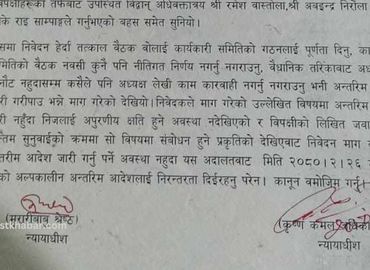 पक्षीहरूका तर्फबाट उपस्थित विद्वान् अधिवक्तात्रय श्री रमेश बास्तोला, श्री अबइन्द्र निरौला
के राइ साम्पाङ्गले गर्नुभएको बहस समेत सुनियो।
समा निवेदन हेर्दा तत्काल बैठक बोलाई कार्यकारी समितिको गठनलाई पूर्णता दिनु, का
समितिको बैठक नबसी कुनै पनि नीतिगत निर्णय नगर्नु नगराउनु, वैधानिक तरिकाबाट अध
नौट नहुदासम्म कसैले पनि अध्यक्ष लेखी काम कारवाही नगर्नु नगराउनु भनी अन्तरिम
री गरीपाउ भन्ने माग गरेको देखियो। निवेदकले माग गरेको उल्लेखित विषयमा अन्तरिम
री नहुँदा निजलाई अपुरणीय क्षति हुने अवस्था नदेखीएको र विपक्षीको लिखित जवा
न्तिम सुनुवाईको क्रममा सो विषयमा संबोधन हुने प्रकृतिको देखिएबाट निवेदन माग
तरीम आदेश जारी गर्नु पर्ने अवस्था नहुदा यस अदालतबाट मिति २०८०।२।२६
को अल्पकालीन अन्तरिम आदेशलाई निरन्तरता दिईरहनु परेन। कानून बमोजिम गर्नू।
(मुरारीबाबु श्रेष्ठ) (कृष्ण कमल
stkhabar.com
न्यायाधीश न्यायाधीश